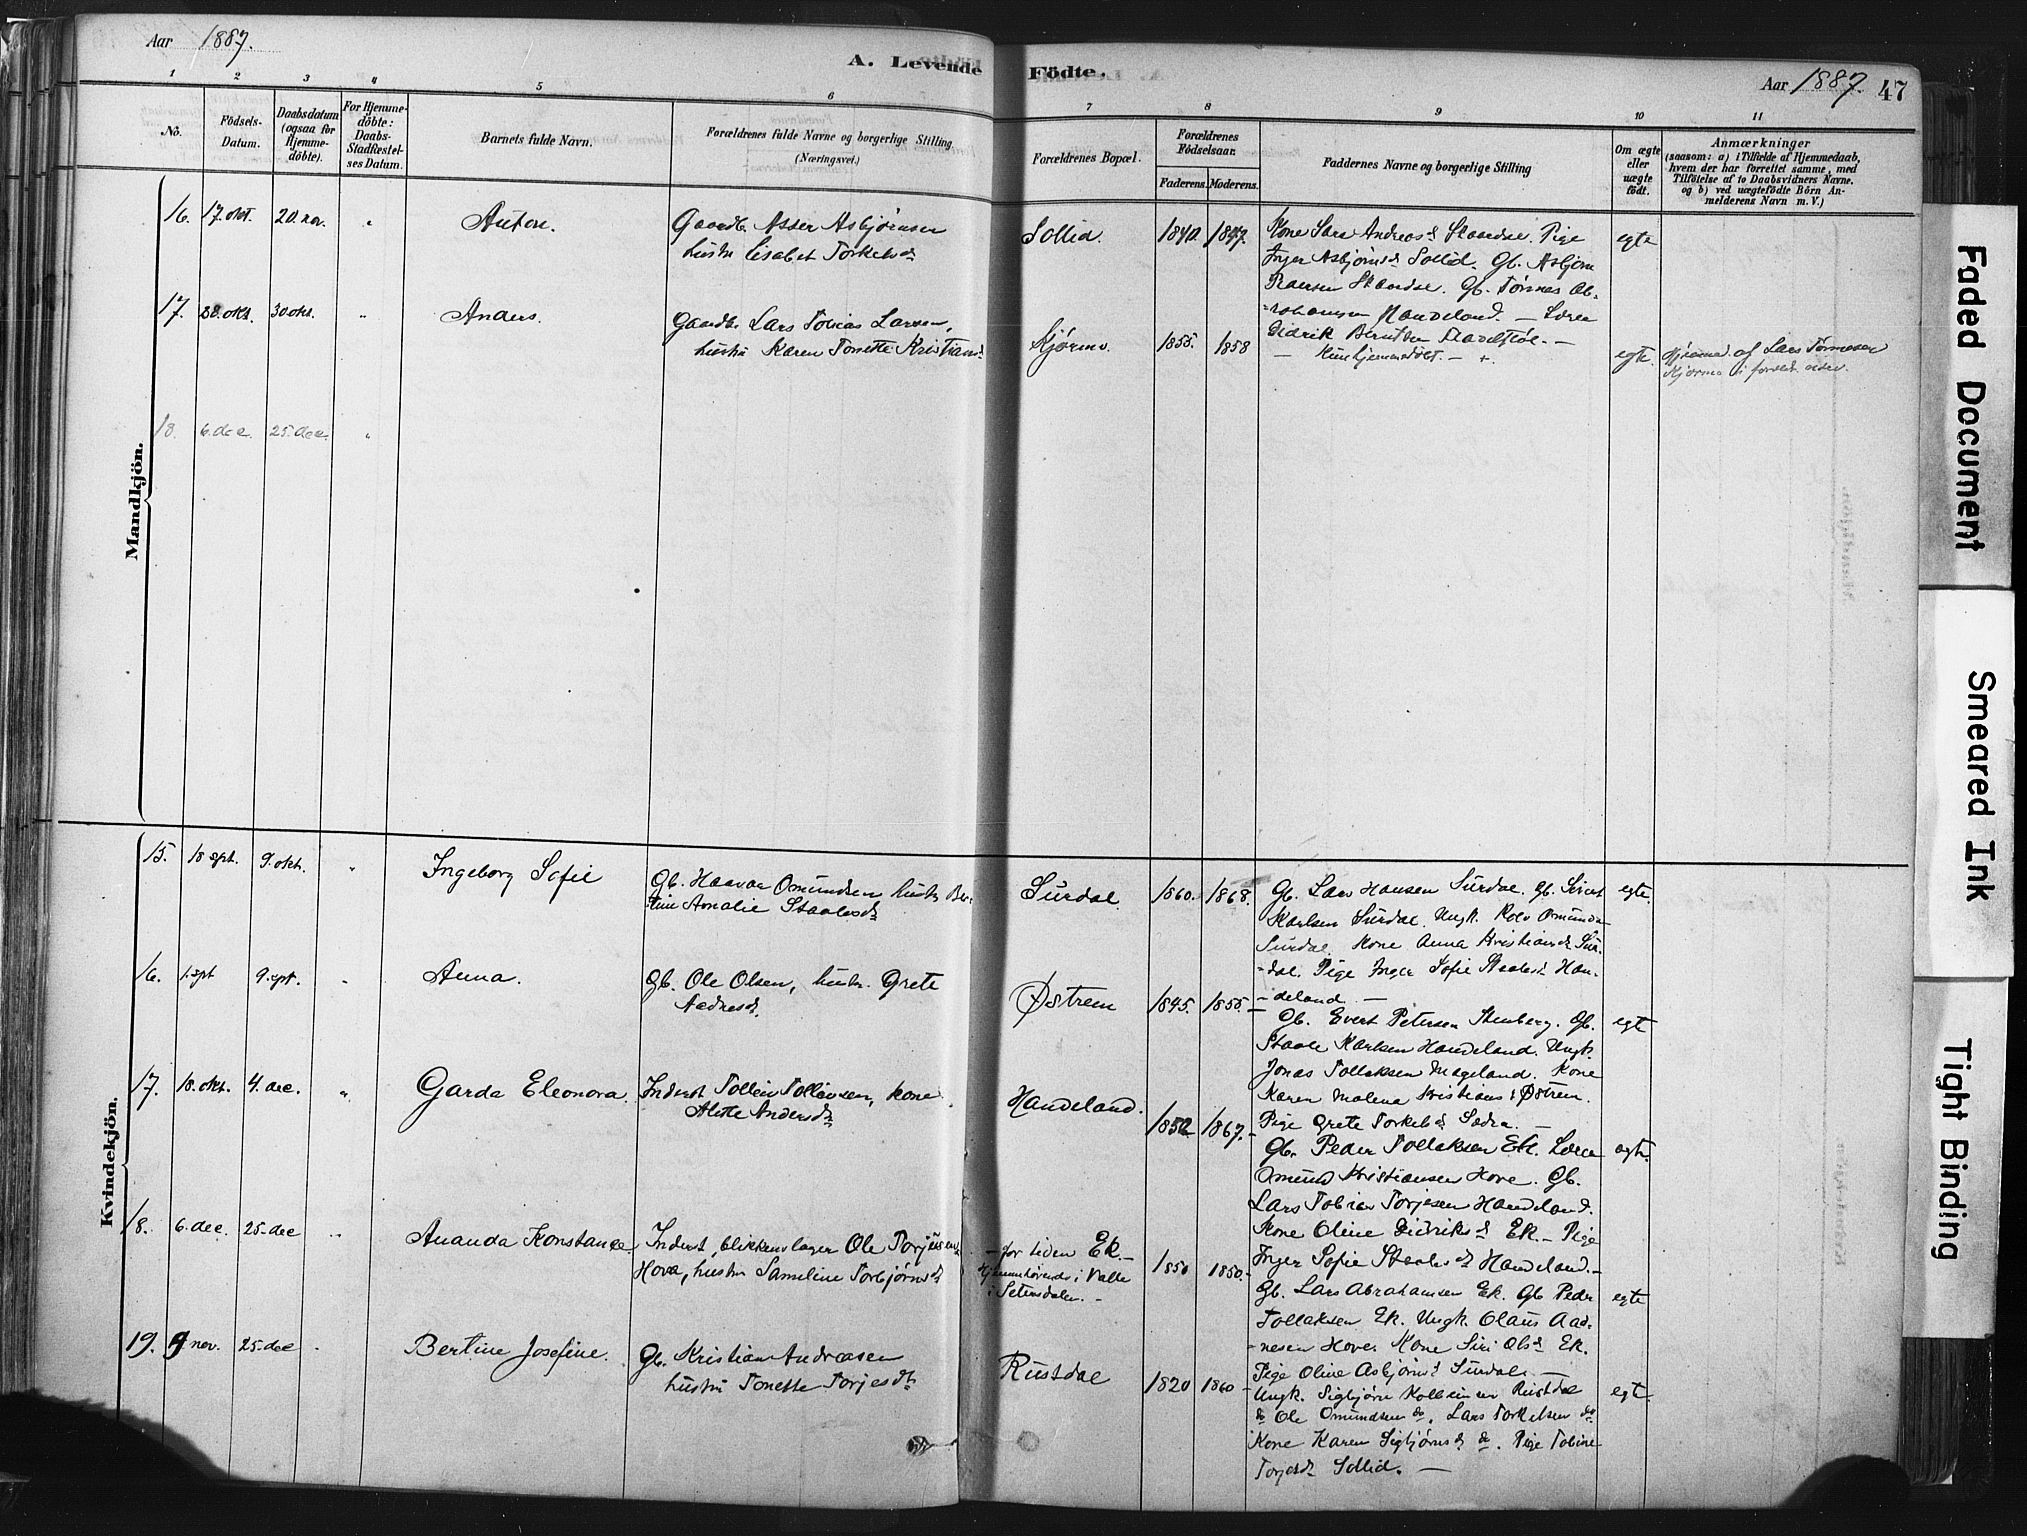 Aar 1887.
A. Levende Födte.
Aar 1887. 47
1 2 3 4 5 6 7 8 9 10 11
No.
Födsels-
Datum.
Daabsdatum
(ogsaa for
Hjemme-
döbte).
For Hjemme-
döbte:
Daabs-
Stadfestel-
ses Datum.
Barnets fulde Navn.
Forældrenes fulde Navne og borgerlige Stilling
(Næringsvei.)
Forældrenes Bopæl.
Forældrenes
Födselsaar.
Faderens. Moderens.
Faddernes Navne og borgerlige Stilling
Om ægte
eller
uægte
födt.
Anmærkninger
(saasom: a) i Tilfælde af Hjemmedaab,
hvem der har forrettet samme, med
Tilföielse af to Daabsvidners Navne,
og b) ved uægtefödte Börn An-
melderens Navn m. V.)
Mandkjön.
16. 17. okt. 20. nov. " Anton.
Gaardb. Asser Asbjørnsen
hustru Lisabet Torkelsd.
Sollid. 1840. 1847.
Kone Sara Andreasd. Skaardse. Pige
Inger Asbjørnsd. Sollid. Gb. Asbjørn
Skaardse. Gb. Tønnes Ab-
-rahamsen Handeland. — Lærer
Didrik Berntsen —
egte
17. 28. okt. 30 okt. " Anders.
Gaardb. Lars Tobias Larsen,
hustru Karen Tonette Kristiansd.
Kjørmo. 1855. 1858
— Kun hjemmedøbt. — +.
egte.
Hjemmed. af Lars Tønnesen
Kjørmo i
18. 6. dec. 25. dec. "
Kvindekjön.
15. 18 sept. 9. okt. " Ingeborg Sofie
Gb. Haavar Omundsen, hustr. Ber-
tine Amalie Staalesd.
Surdal. 1860. 1868.
Gb. Lars Hansen Surdal. Gb. Sivert
Karlsen Surdal. Ungk. Rolv Omunds.
Surdal. Kone Anna Kristiansd. Sur-
-dal. Pige Inger Sofie Staalesd. Han-
-deland. —
egte.
16. 1. sept 9. sept. " Anna.
Gb. Ole Olsen, hustr. Grete
Aadnesd.
Østrem 1845. 1855.
Gb. Evert Petersen Stenberg. Gb.
Staale Karlsen Handeland. Ungk.
Jonas Tollaksen Mageland. Kone
Karen Malena Kristiansd. Østrem.
Pige Grete Torkelsd. —
egte
17. 18. okt. 4. dec. " Garda Eleonora.
Inderst Tollev Tollevsen, kone
Alette Andersd.
Handeland. 1852 1867.
Gb. Peder Tollaksen Ek. Lærer
Omund Kristiansen Hove. Gb.
Lars Tobias Torjesen Handeland.
Kone Oline Didriksd. Ek. — Pige
Inger Sofie Staalesd. Handeland. —
egte.
18. 6. dec. 25. dec " Ananda Konstanse
Inderst, blikkenslager Ole Torjusen
Hova, hustru Sameline Torbjørnsd.
— for tiden Ek. —
Hjemmehørende i Valle
i Setersdalen. —
1850 1850.
Gb. Lars Abrahamsen Ek. Gb Peder
Tollaksen Ek. Ungk. Olaus Aad-
-nesen Hove. Kone Siri Olsd. Ek.
Pige Oline Asbjørnsd. Surdal. —
egte
19. 9 nov. 25. dec " Bertine Josefine.
Gb. Kristian Andreasen
hustru Tonette Torjesd.
Rustdal 1820 1860
Ungk. Sigbjørn Kolbeinsen Rustdal
do Ole Omundsen do. Lars Torkelsen do
Kone Karen Sigbjørnsd. do. Pige Tobine
Torjesd. Sollid. —
egt.
Faded Document
Smeared Ink
Tight Binding